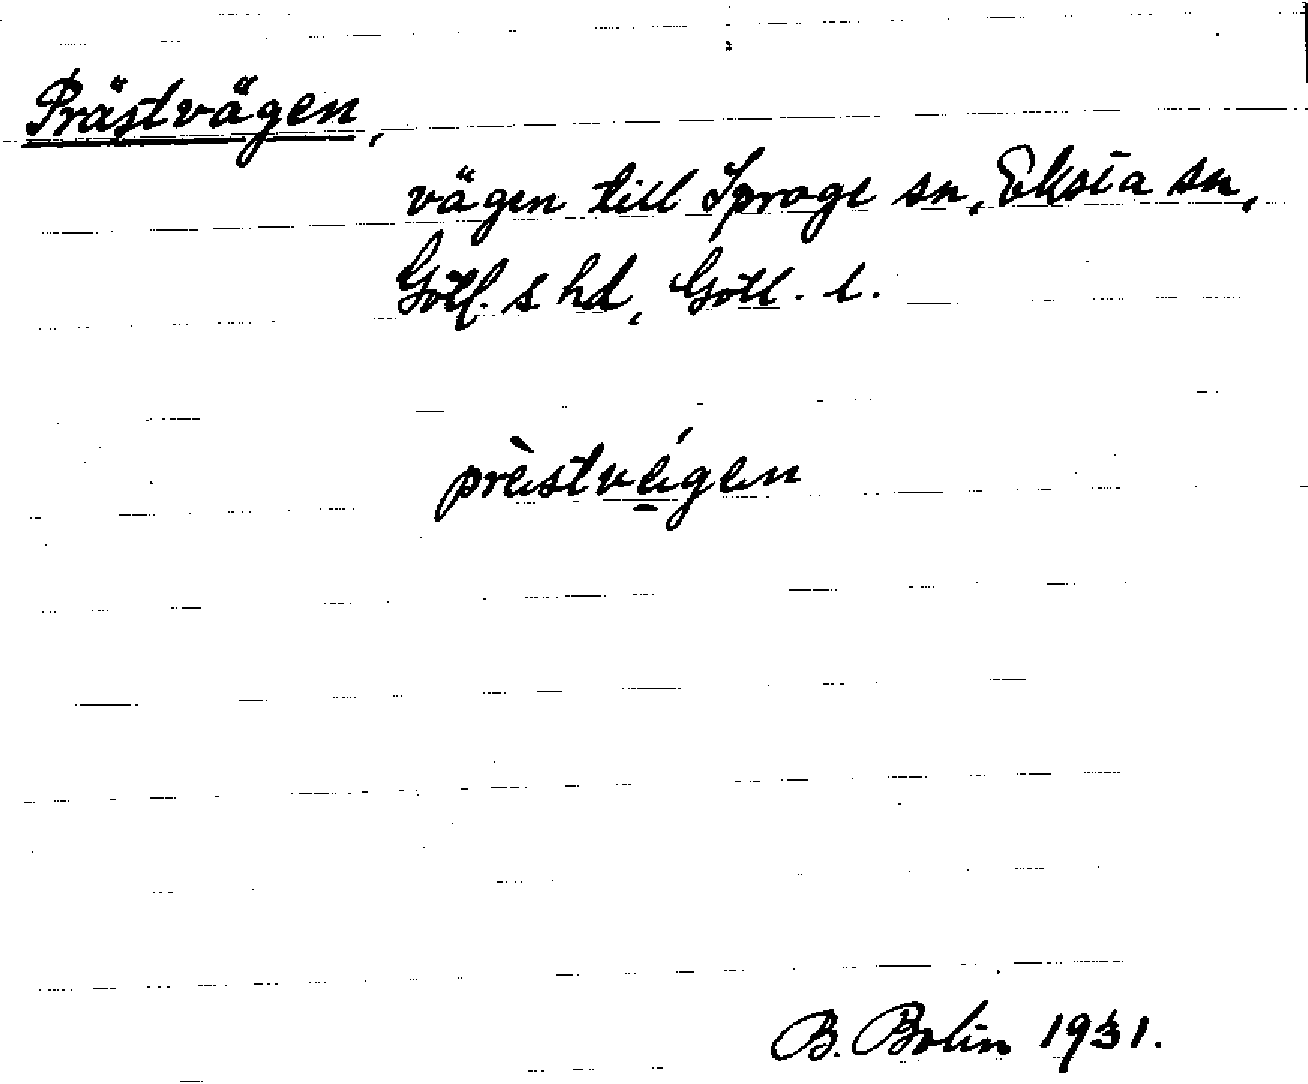 Prästvägen,
vägen till Sproge sn, Eksta sn,
Gotl. s hd, Gotl. l.
prèstvég̱en
B. Bolin 1931.